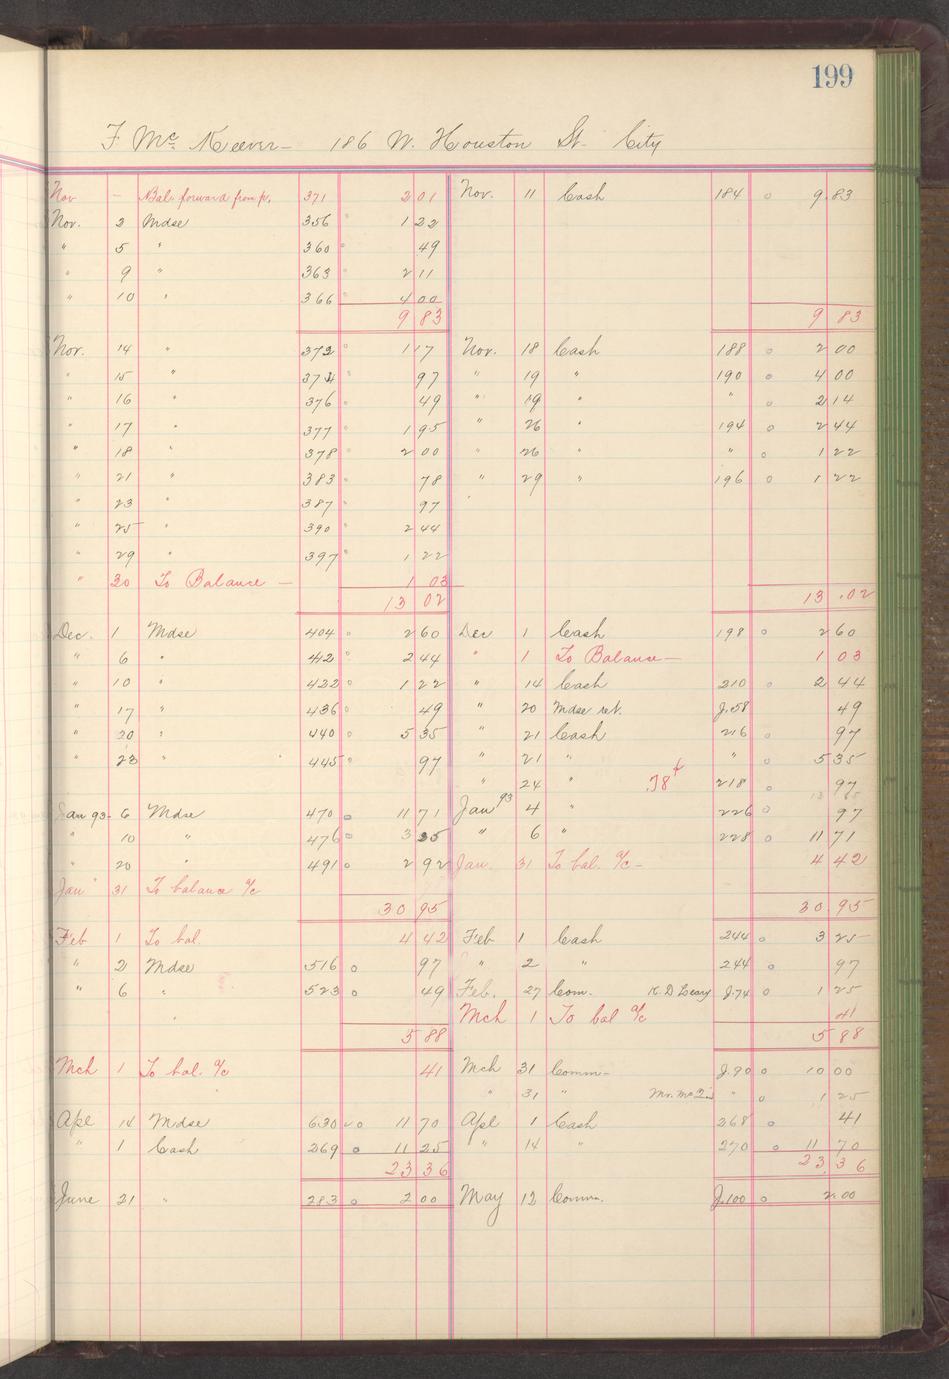 199
F McKeever – 186 W. Houston St. City
Nov – Bal. forward from p. 371 2 01 Nov. 11 Cash 184 9.83
Nov. 2 Mdse 356 1 22
" 5 " 360 49
" 9 " 363 2 11
" 10 " 366 4 00
9 83 9 83
Nov. 14 " 372 1 17 Nov. 18 Cash 188 2 00
" 15 " 374 97 " 19 " 190 4 00
" 16 " 376 49 " 19 " " 2 14
" 17 " 377 1 95 " 26 " 194 2 44
" 18 " 378 2 00 " 26 " " 1 22
" 21 " 383 78 " 29 " 196 1 22
" 23 " 387 97
" 25 " 390 2 44
" 29 " 397 1 22
" 30 To Balance – 1 03
13 02 13.02
Dec. 1 Mdse 404 2 60 Dec 1 Cash 198 2 60
" 6 " 412 2 44 " 1 To Balance – 1 03
" 10 " 422 1 22 " 14 Cash 210 2 44
" 17 " 436 49 " 20 Mdse ret. J.58 49
" 20 " 440 5 35 " 21 Cash 216 97
" 23 " 445 97 " 21 " " 5 35
" 24 " .78¢ 218 97
Jan 93 – 6 Mdse 470 11 71 Jan 93 4 " 226 97
" 10 " 476 3 25 " 6 " 228 11 71
" 20 " 491 2 92 Jan. 31 To bal. a/c – 4 42
Jan 31 To balance a/c
30 95 30.95
Feb 1 To bal. 4 42 Feb 1 Cash 244 3 25
" 2 Mdse 516 97 " 2 " 244 97
" 6 " 523 49 Feb. 27 Com. K. D Leary J.74 1 25
Mch 1 To bal a/c 41
5 88 5 88
Mch 1 To bal. a/c 41 Mch 31 Comm – J.90 10 00
" 31 " " 1 25
Apl 14 Mdse 630 11 70 Apl 1 Cash 268 41
" 1 Cash 269 11 25 " 14 " 270 11 70
23 36 23.36
June 21 " 283 2 00 May 12 Comm. J.100 2.00